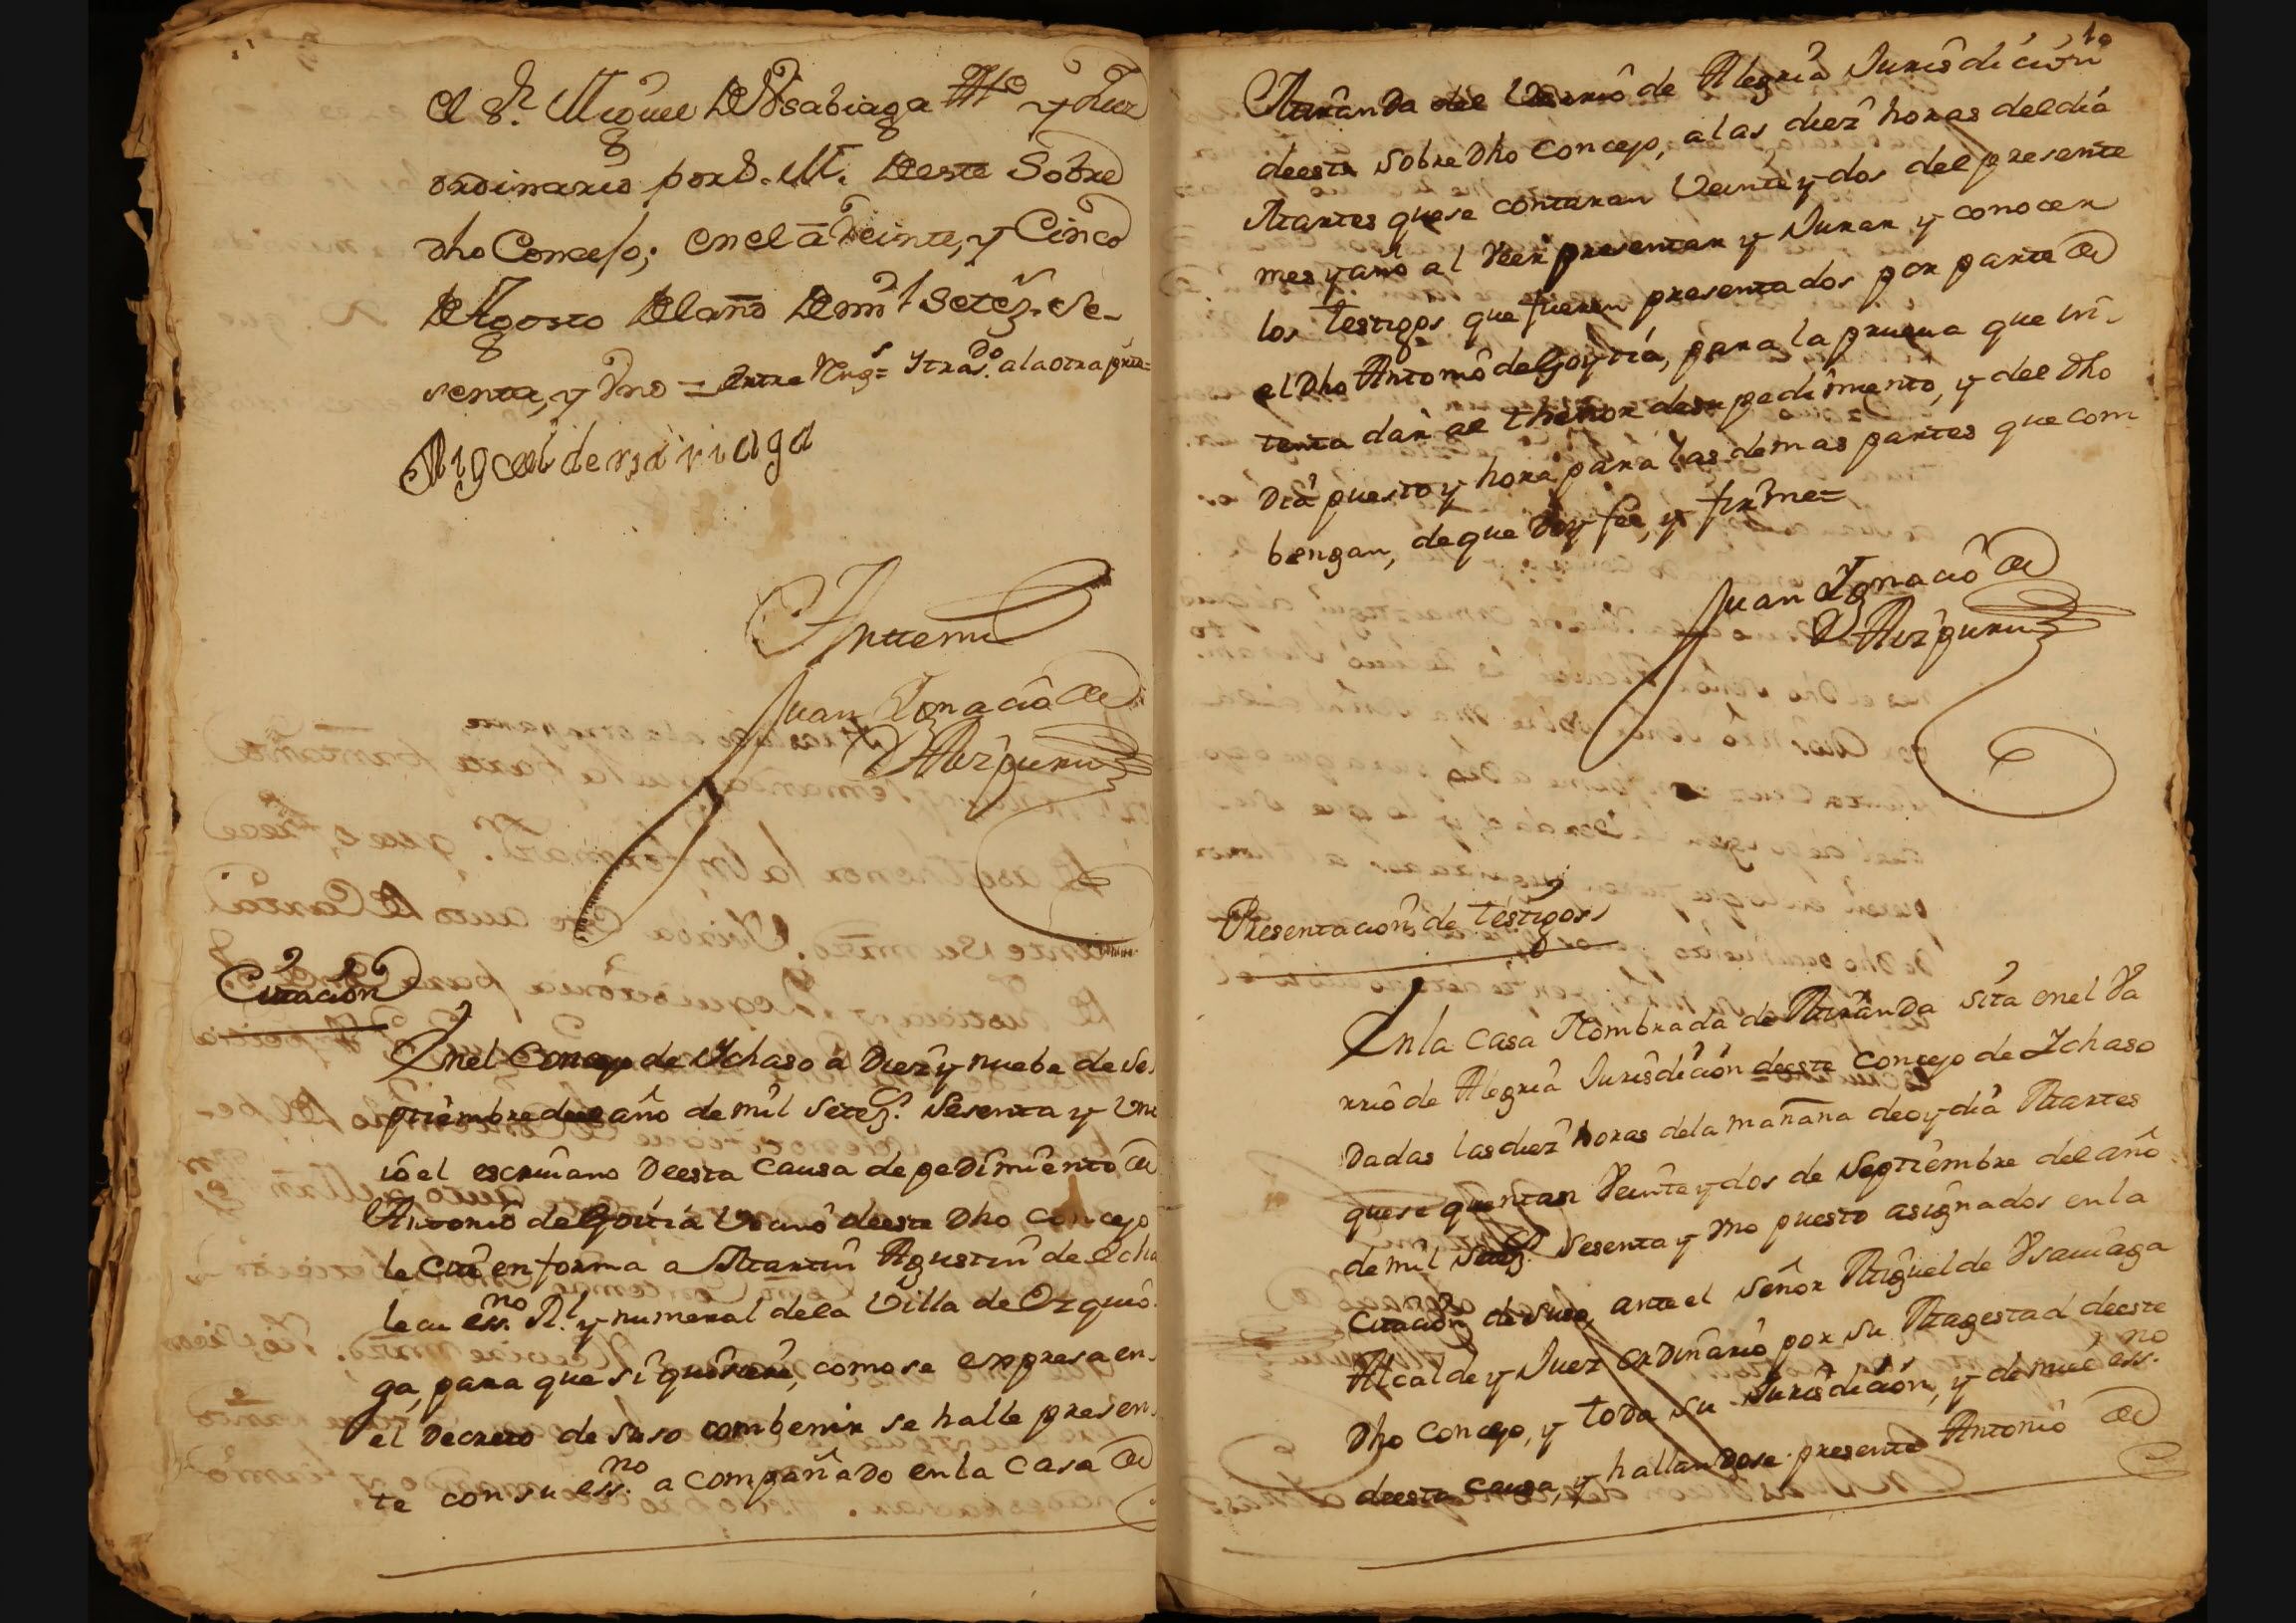 el S.r Miguel de Vsabiaga Alc.e y Juez
ordinario por S. M. deeste Sobre
dho Concejo; en el a veinte, y Cinco
de Agosto del año de mil Setez.s Se-
senta, y Vno = entre Rengs = Ytras.do a la otra parte =
Miguel de vsaviaga
Antemi
Juan Ygnacio de
Aizpuru
Citacion
Enel Concejo de Ychaso á Diez y nuebe de Se-
ptiembre del año de mil Setez.s Sesenta y Uno
ió el escriuano deesta causa de pedimiento de
Antonio de Goitia Vecino deeste Dho concejo
le cité en forma a Martin Agustin de Echa
lecu ess.no Rl. y numeral dela Villa de Ozquio
ga, para que si quisiere, como se expresa en
el Decreto de suso combenir se halle presen-
te con su ess.no acompañado en la Casa de
10
Miranda del Varrio de Alegria Jurisdicion
deeste sobre Dho concejo, alas diez horas del dia
Martes quese contaran Veinte y dos del presente
mes y año al veer presentar y Jurar y conocer
los testigos que fueren presentados por parte de
el Dho Antonio de Goytia, para la prueua que in-
tenta dar al thenor desu pedimiento, y del Dho
Dia puesto y hora para las demas partes que com-
bengan, de que Doy fee, y firme =
Juan Ygnacio de
Aizpuru
Presentacion de testigos
En la Casa Nombrada de Miranda sita enel Va
rrio de Alegria Jurisdicion deeste concejo de Ychaso
Dadas las diez horas dela mañana de oy dia Martes
quese quentan Veinte y dos de Septiembre del año
de mil Setez.s Sesenta y Vno puesto asignados en la
Citacion de suso, ante el Señor Miguel de Vsauiaga
Alcalde y Juez ordinario por su Magestad deeste
Dho Concejo, y toda su Jurisdicion, y de mi el ess.no
deesta causa, y hallandose presente Antonio de